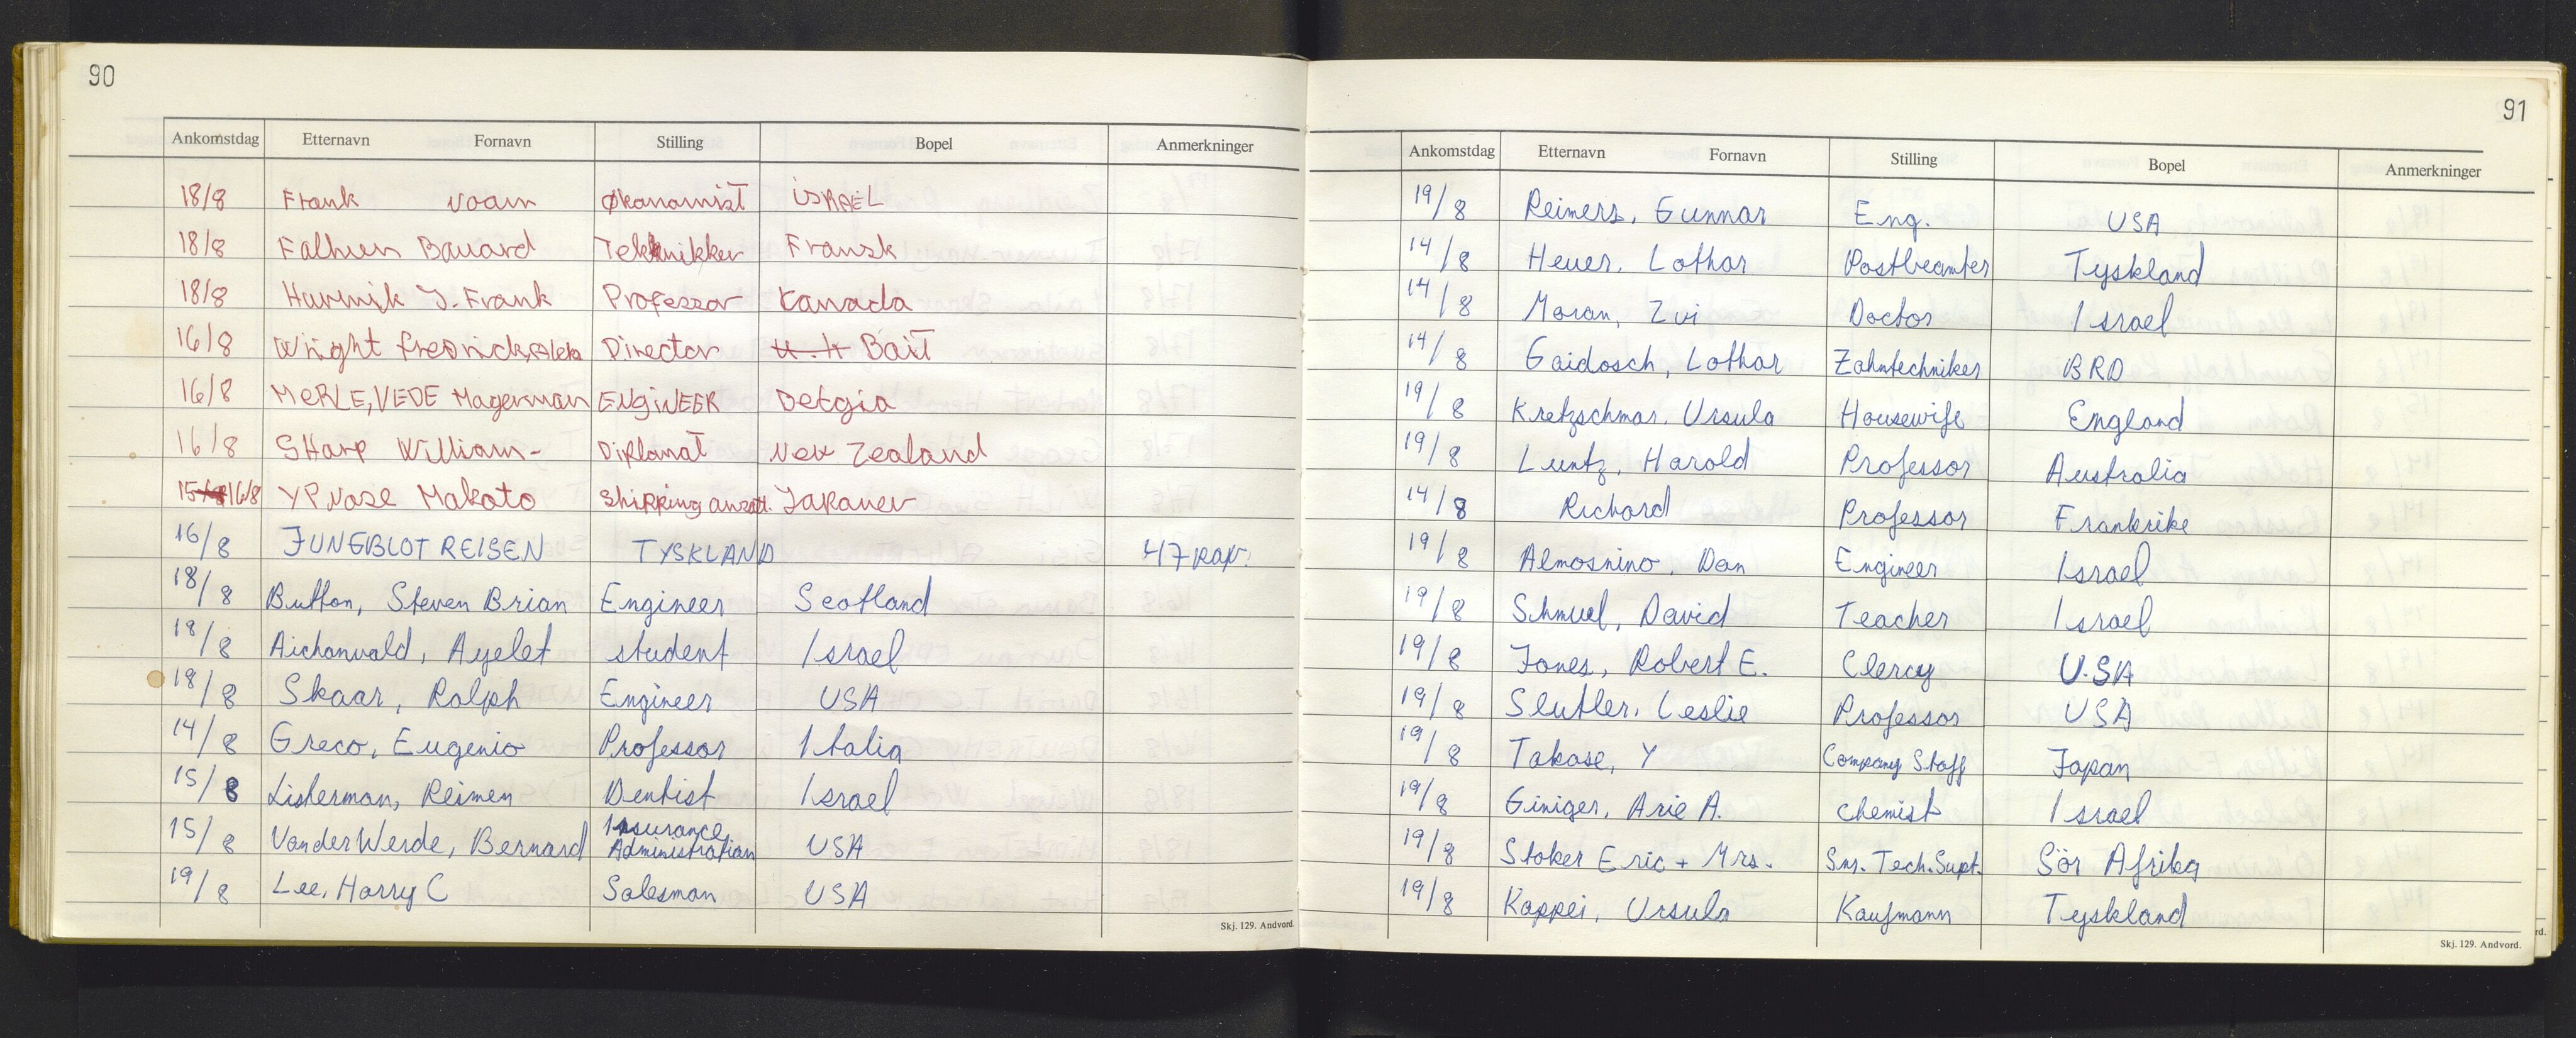 90
Ankomstdag Etternavn Fornavn Stilling Bopel Anmerkninger
18/8 Frank Noam Økonomist iSRAEL
18/8 Bauard Tekknikker Fransk
18/8 J. Frank Professor Kanada
16/8 Wright fredrick, Director
16/8 MeRLE, VEDE Magerman ENgiNEER
16/8 SHarp William- Diplomat New Zealand
16/8 Makoto Shipping
16/8 JUNGBLOT REISEN TYSKLAND 47
18/8 Button, Steven Brian Engineer Scotland
18/8 Aichanwald, Ayelet student Israel
18/8 Skaar, Ralph Engineer USA
14/8 Greco, Eugenio Professor Italia
15/8 Listerman, Reimen Dentist Israel
15/8 VanderWerde, Bernard Insurance Administration USA
19/8 Lee, Harry C Salesman USA
Skj. 129. Andvord.
91
Ankomstdag Etternavn Fornavn Stilling Bopel Anmerkninger
19/8 Reiners, Gunnar Eng. USA
14/8 Heuer, Lothar Postbeamter Tyskland
14/8 Moran, Zvi Doctor Israel
14/8 Gaidosch, Lothar Zahntechniker BRD
19/8 Kretzschmar, Ursula Housewife England
19/8 Luntz, Harold Professor Australia
14/8 Richard Professor Frankrike
19/8 Almosnino, Dan Engineer Israel
19/8 Schmuel, David Teacher Israel
19/8 Jones, Robert E. Clercy U.S.A
19/8 Slutler, Leslie Professor USA
19/8 Takase, Y Company Staff Japan
19/8 Giniger, Arie A. Chemist Israel
19/8 Stoker Eric + Mrs. Snr. Tech. Supt. Sör Afrika
19/8 Kappei, Ursula Kaufmann Tyskland
Skj. 129. Andvord.